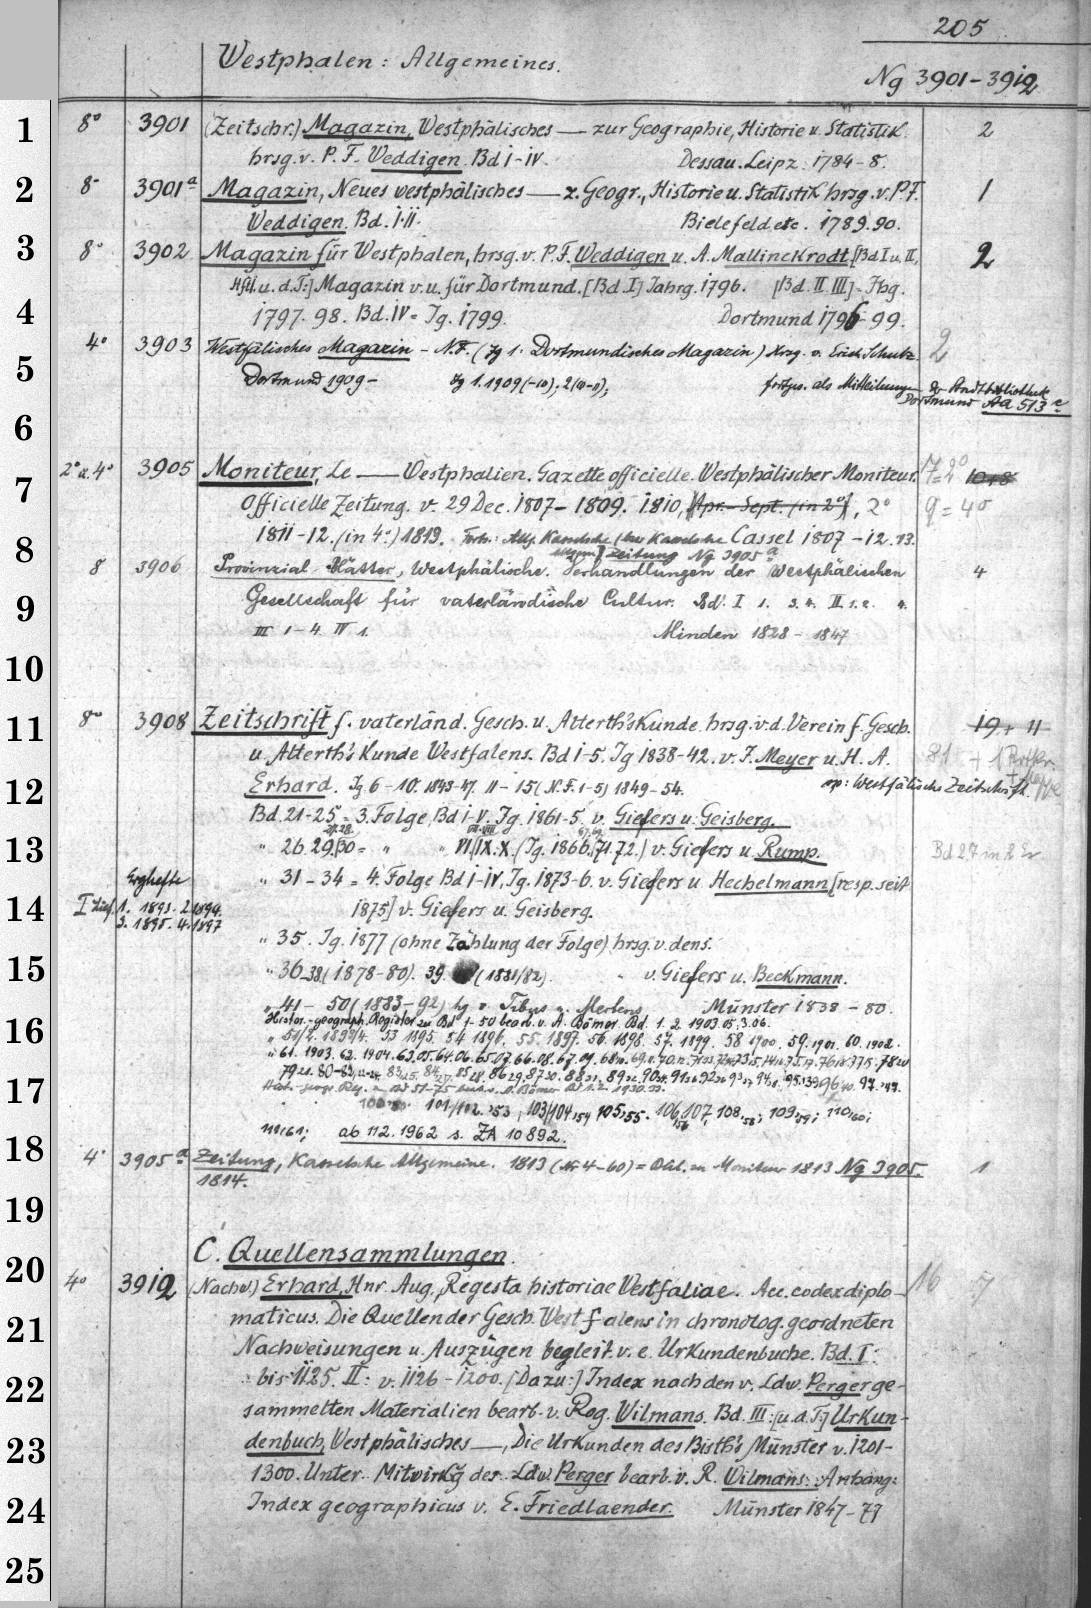 205
Westphalen: Allgemeines.
Ng 3901-3912
1 8° 3901 (Zeitschr.) Magazin, Westphälisches — zur Geographie, Historie u. Statistik 2
hrsg. v. P. F. Weddigen. Bd I-IV. Dessau. Leipz. 1784-8.
2 8° 3901a Magazin, Neues westphälisches — z. Geogr., Historie u. Statistik hrsg. v. P. F. 1
Weddigen. Bd. I-II. Bielefeld etc. 1789.90.
3 8° 3902 Magazin für Westphalen, hrsg. v. P. F. Weddigen u. A. Mallinckrodt [Bd I u. II, 2
u. d. T:] Magazin v. u. für Dortmund. [Bd I] Jahrg. 1796. [Bd. II. III] = Jhg.
4 1797. 98. Bd. IV = Jg. 1799. Dortmund 1796-99.
4° 3903 Westfälisches Magazin - N.F. (Jg 1. Dortmundisches Magazin) Hrsg. v. Erich Schulz. 2
5 Dortmund 1909- Jg 1. 1909(-10); 2(10-11); fortges. als Mitteilungen der Stadtbibliothek
Dortmund Aa 513e
6
2° u. 4° 3905 Moniteur, Le — Westphalien. Gazette officielle. Westphälischer Moniteur. 7=2° 10+8
7 Officielle Zeitung. v. 29 Dec. 1807-1809. 1810, [Apr.-Sept. (in 2°)], 2° 9=4°
8 1811-12. (in 4°) 1813. Forts.: Allg. Kasselsche Cassel 1807-12.13.
Zeitung Ng 3905a
8 3906 Provinzial-Blätter, Westphälische. Verhandlungen der Westphälischen 4
9 Gesellschaft für vaterländische Cultur. Bd. I 1. 3. 4. II 1. 2. 4.
III 1-4. IV 1. Minden 1828-1847
10
11 8° 3908 Zeitschrift f. vaterländ. Gesch. u. Alterth'skunde hrsg. v. d. Verein f. Gesch. 19 + 11
u. Alterth's Kunde Westfalens. Bd 1-5. Jg 1838-42. v. F. Meyer u. H. A. 81 + 1
12 Erhard. Jg 6-10. 1843-47. 11-15 (N.F. 1-5) 1849-54. Westfälische Zeitschrift.
Bd. 21-25 = 3. Folge, Bd I-V. Jg. 1861-5. v. Giefers u. Geisberg.
27.28. VII.VIII 67.69.
13 " 26. 29. 30 = " " VI. IX. X. (Jg. 1866. 71.72.) v. Giefers u. Rump. Bd 27 in 2 Ex
Erghefte " 31-34 = 4. Folge Bd I-IV, Jg. 1873-6. v. Giefers u Hechelmann [resp. seit
14 1. 1893. 2. 1894. 1875] v. Giefers u. Geisberg.
3. 1895. 4. 1897 " 35. Jg. 1877 (ohne Zählung der Folge) hrsg. v. dens.
15 " 36-38 (1878-80). 39. (1881/82). v. Giefers u. Beckmann.
" 41-50 (1883-92) hg v. Tibus u. Mertens Münster 1838-80.
16 Histor.-geograph. Register zu Bd 1-50 bearb. v. A. Bömer. Bd. 1. 2. 1903.05. 3.06.
53 1895. 54 1896. 55. 1897. 56. 1898. 57. 1899. 58 1900. 59. 1901. 60. 1902.
" 61. 1903. 62. 1904. 63.05. 64.06. 65.07. 66.08. 67.09.
17
101/102. '53, 103/104,54 105,55. 106,56 107, 108,58; 109,59; 110,60;
111,61; ab 112. 1962 s. ZA 10892.
18 4° 3905a Zeitung, Kasselsche Allgemeine. 1813 (Nr 4-60) = Moniteur 1813 Ng 3905. 1
1814.
19
C. Quellensammlungen
20 4° 3912 (Nachw.) Erhard, Hnr. Aug., Regesta historiae Westfaliae. Acc. codex diplo- 16
21 maticus. Die Quellen der Gesch. Westfalens in chronolog. geordneten
Nachweisungen u. Auszügen begleit. v. e. Urkundenbuche. Bd. I:
22 bis 1125. II: v. 1126-1200. [Dazu:] Index nach den v. Ldw. Perger ge-
sammelten Materialien bearb. v. Rog. Wilmans. Bd. III: [u. d. T:] Urkun-
23 denbuch, Westphälisches —, Die Urkunden des Bisth's Münster v. 1201-
1300. Unter Mitwirk'g der Ldw. Perger bearb. v. R. Wilmans. Anhang:
24 Index geographicus v. E. Friedlaender. Münster 1847-71
25